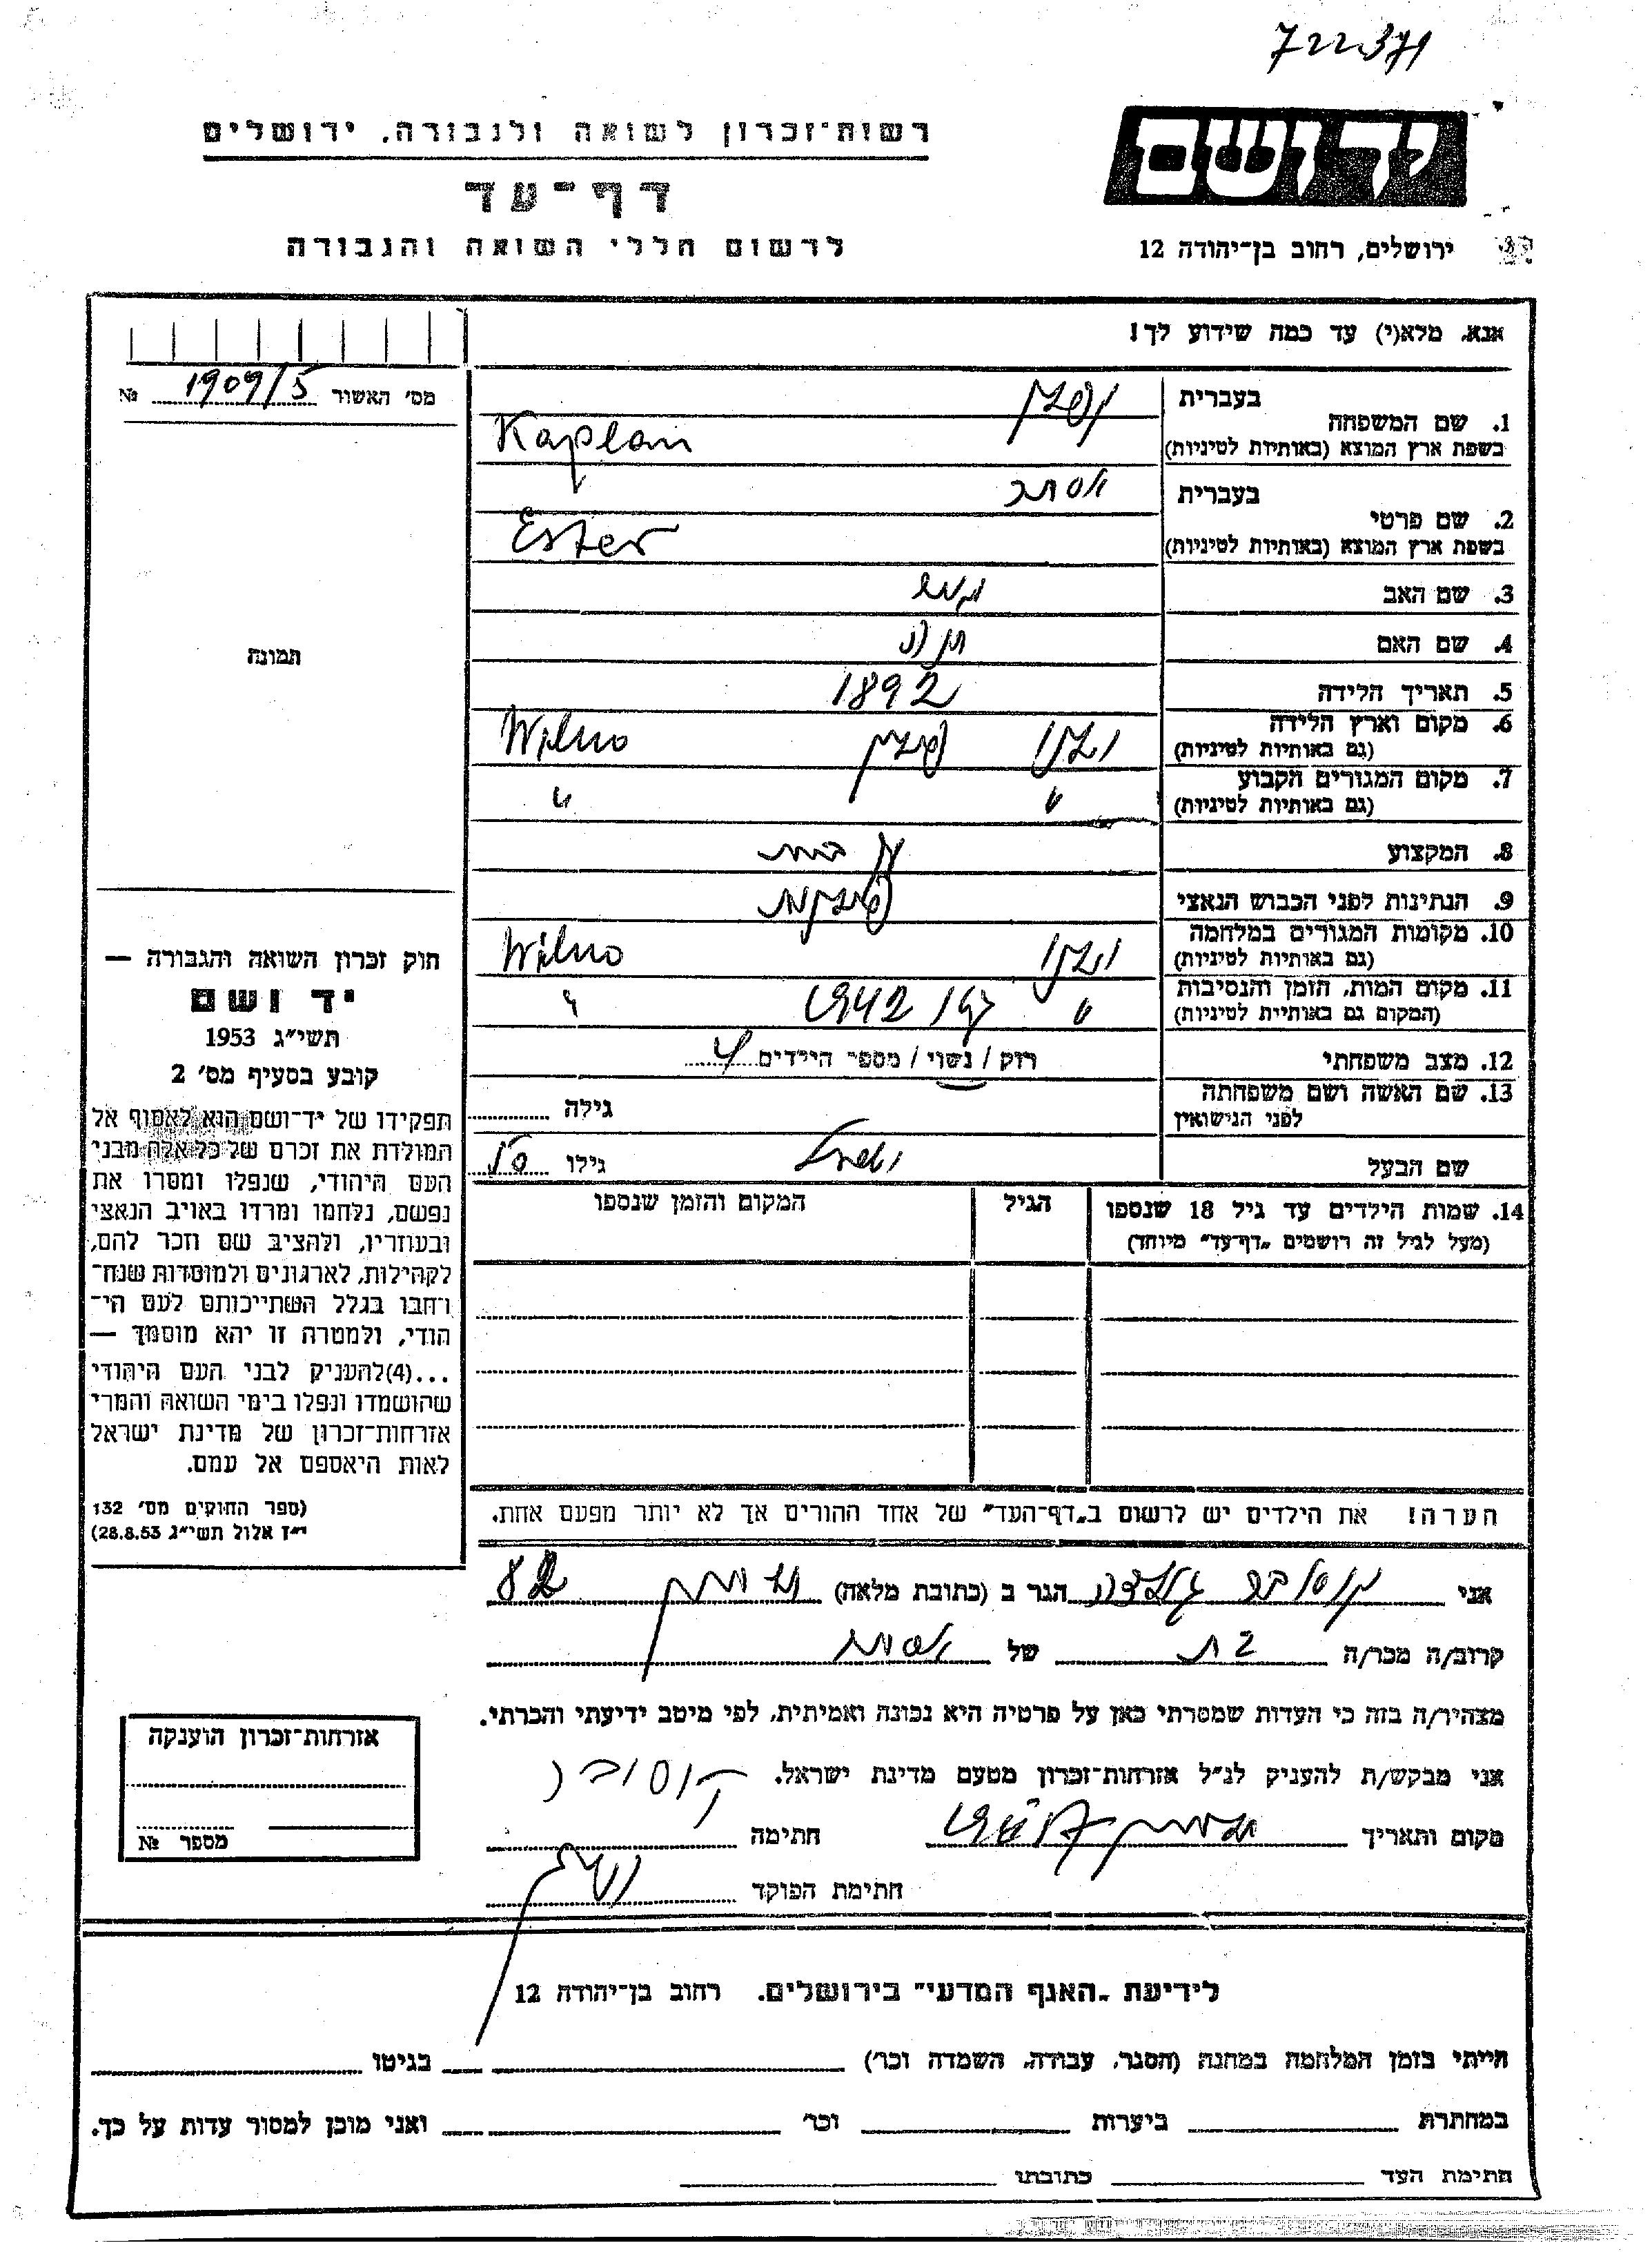 722371
רשות־זכרון לשואה ולגבורה, ירושלים
דף־עד
לרשום חללי השואה והגבורה
יד ושם
ירושלים, רחוב בן־יהודה 12
אנא, מלא(י) עד כמה שידוע לך!
מס׳ האשור 1909/5 №
תמונה
1. שם המשפחה בעברית קפלן
בשפת ארץ המוצא (באותיות לטיניות) Kaplan
2. שם פרטי בעברית אסתר
בשפת ארץ המוצא (באותיות לטיניות) Ester
3. שם האב
4. שם האם
5. תאריך הלידה 1892
6. מקום וארץ הלידה וילנו פולין Wilno
(גם באותיות לטיניות)
7. מקום המגורים הקבוע " "
(גם באותיות לטיניות)
8. המקצוע עק בית
9. הנתינות לפני הכבוש הנאצי פולנית
10. מקומות המגורים במלחמה וילנו Wilno
(גם באותיות לטיניות)
11. מקום המות, הזמן והנסיבות " 1942 "
(המקום גם באותיות לטיניות)
12. מצב משפחתי רוק / נשוי / מספר הילדים 4
13. שם האשה ושם משפחתה גילה
לפני הנישואין
שם הבעל גילו
14. שמות הילדים עד גיל 18 שנספו הגיל המקום והזמן שנספו
(מעל לגיל זה רושמים „דף־עד״ מיוחד)
חוק זכרון השואה והגבורה —
יד ושם
תשי״ג 1953
קובע בסעיף מס׳ 2
תפקידו של יד־ושם הוא לאסוף אל
המולדת את זכרם של כל אלה מבני
העם היהודי, שנפלו ומסרו את
נפשם, נלחמו ומרדו באויב הנאצי
ובעוזריו, ולהציב שם וזכר להם,
לקהילות, לארגונים ולמוסדות שנח־
רחבו בגלל השתייכותם לעם הי־
הודי, ולמטרה זו יהא מוסמך —
...(4)להעניק לבני העם היהודי
שהושמדו ונפלו בימי השואה והמרי
אזרחות־זכרון של מדינת ישראל
לאות היאספם אל עמם.
(ספר החוקים מס׳ 132
י״ז אלול תשי״ג 28.8.53)
הערה! את הילדים יש לרשום ב„דף־העד״ של אחד ההורים אך לא יותר מפעם אחת.
אני הגר ב (כתובת מלאה) 82
קרוב/ה מכר/ה בת של
מצהיר/ה בזה כי העדות שמסרתי כאן על פרטיה היא נכונה ואמיתית, לפי מיטב ידיעתי והכרתי.
אני מבקש/ת להעניק לנ״ל אזרחות־זכרון מטעם מדינת ישראל.
מקום ותאריך חתימה
חתימת הפוקד
אזרחות־זכרון הוענקה
מספר №
לידיעת „האגף המדעי״ בירושלים. רחוב בן־יהודה 12
הייתי בזמן המלחמה במחנה (הסגר, עבודה, השמדה וכר) בגיטו
במחתרת ביערות וכר ואני מוכן למסור עדות על כך.
חתימת העד כתובתו